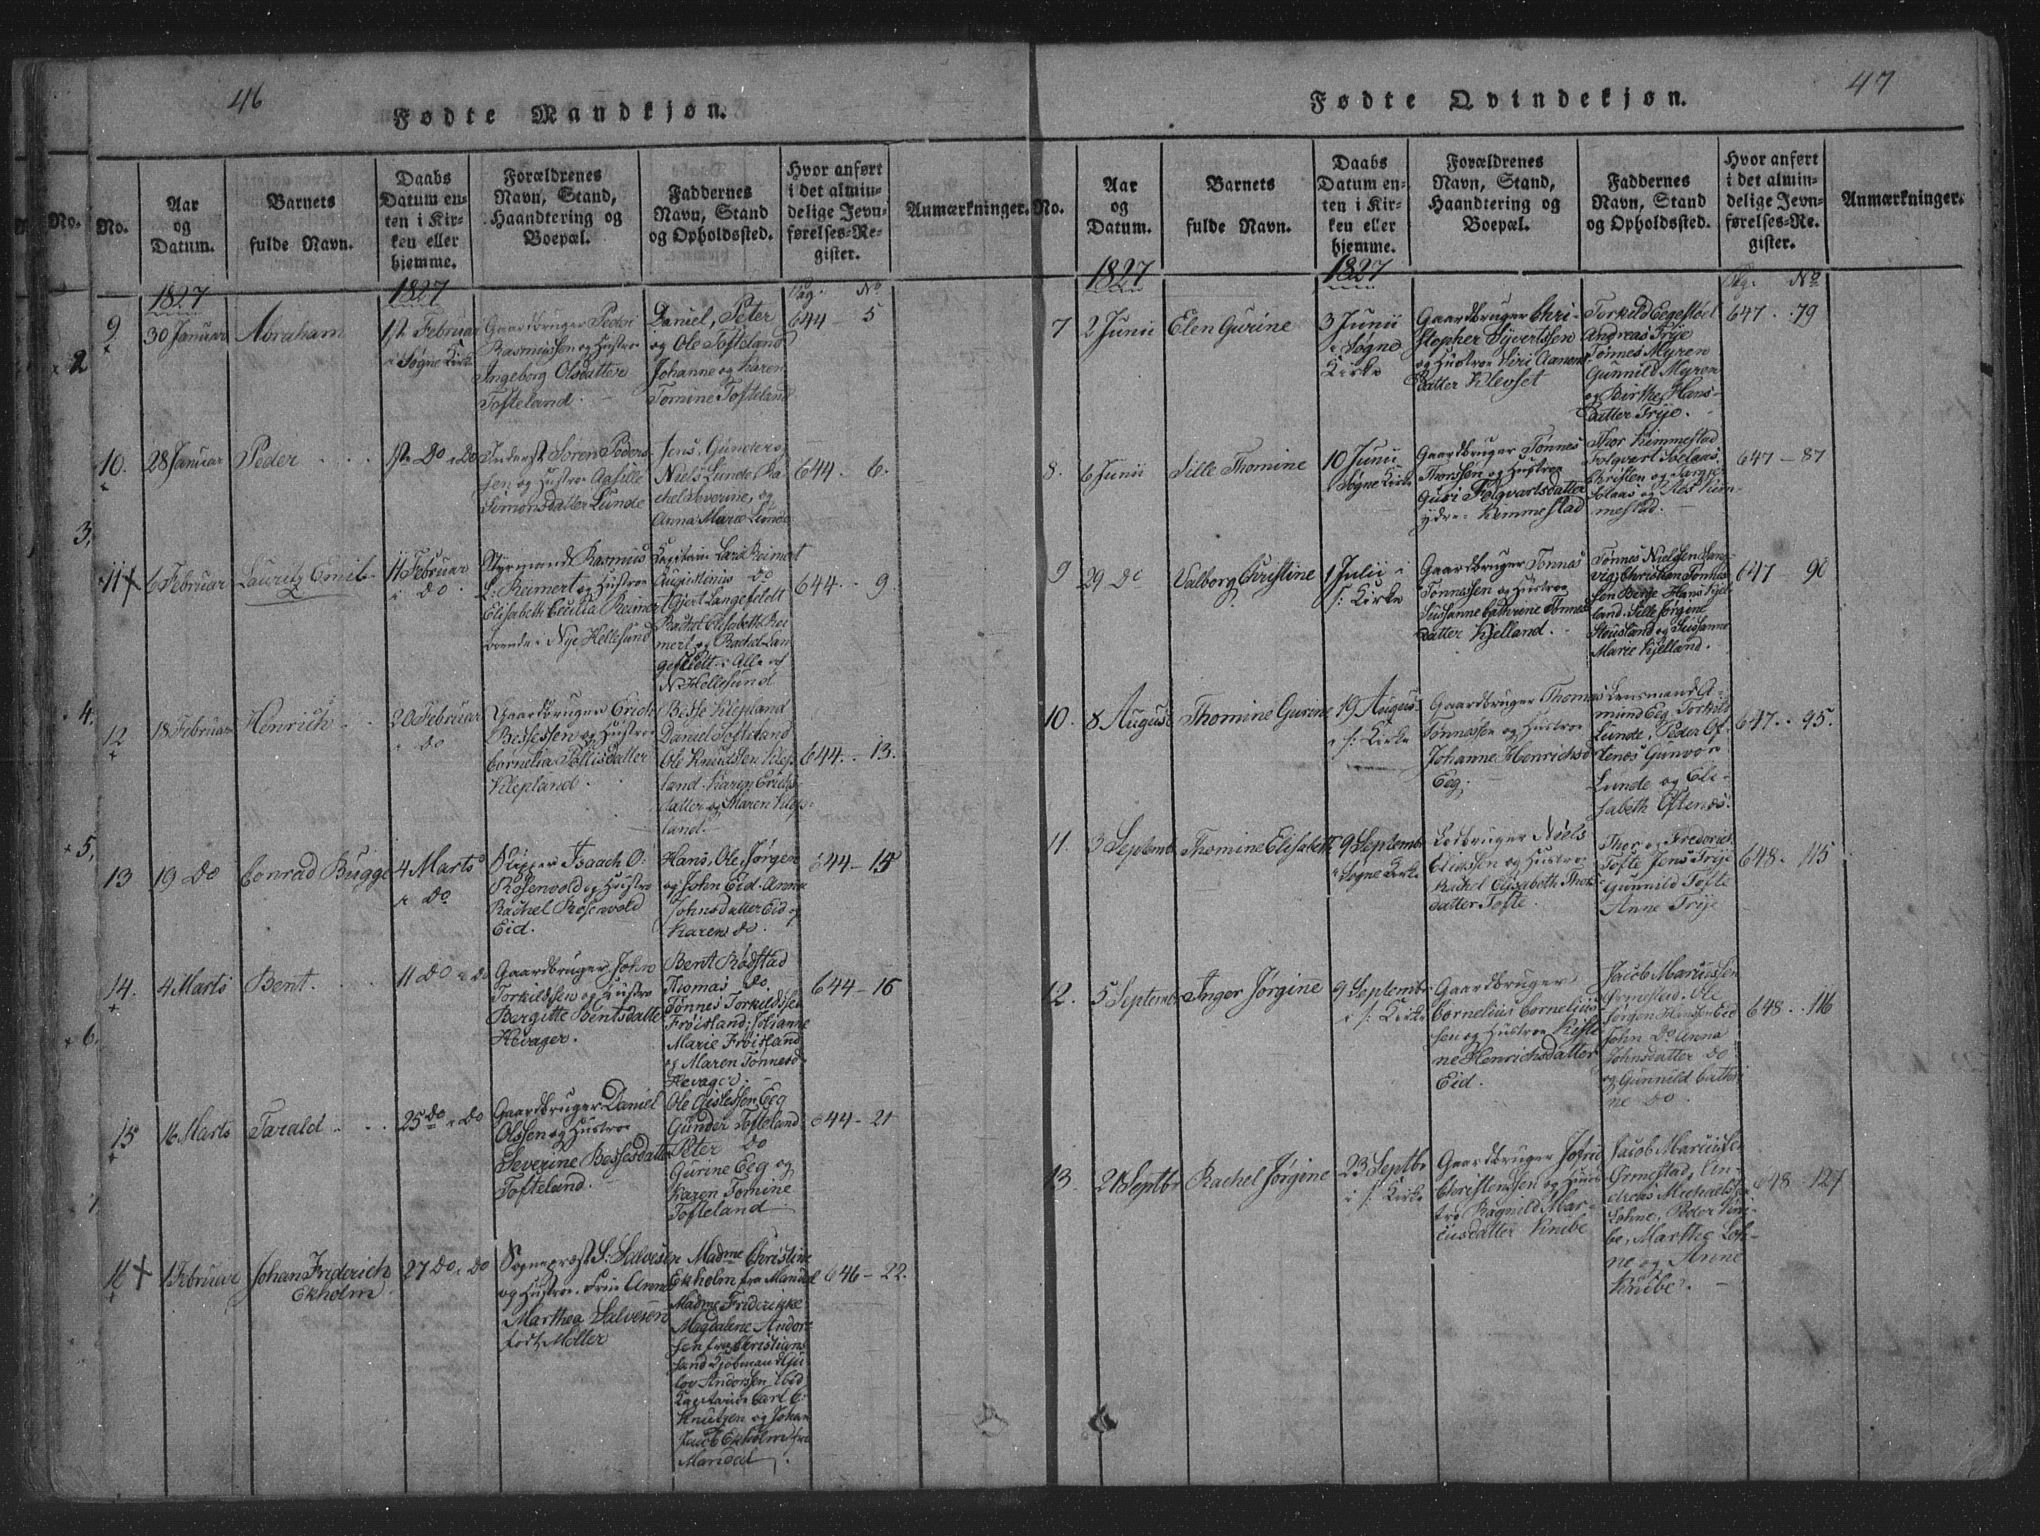 46
Fødte Mandkjøn.
No.
Aar
og
Datum.
Barnets
fulde Navn.
Daabs
Datum en-
ten i Kir-
ken eller
hjemme.
Forældrenes
Navn, Stand,
Haandtering og
Boepæl.
Faddernes
Navn, Stand
og Opholdssted.
Hvor anført
i det almin-
delige Jevn-
førelses-Re-
gister.
Anmærkninger.
1827
1827
Pag. No
9
30 Januar
Abraham
1ste Februar
i Søgne Kirke
Gaardbruger Peder
Rasmussen og Hustroe
Ingeborg Olsdatter
Tofteland
Daniel, Peter
og Ole Tofteland
Johanne og Karen
Tomine Tofteland
644 5
10.
28 Januar
Peder
1ste Do i Do
Inderst Søren Peders
sen og Hustroe Aasille
Simonsdatter Lunde
Jens, Gunders
Niels Lunde, Ra
chel Severine, og
Anna Marie Lunde
644. 6.
11
6 Februar
Lauritz Emil
11 Februar
i Do
Styrmand Rasmus
L. Reimert og Hustroe
Elisabeth Cecilia Reimert
boende i Nye Hellesund
Capitain Lars Reimert
Augustinus Do
Gjert Langefeldt
Rachel Elisabeth Rei
mert og Rachel Lan
gefeldt. Alle af
N Hellesund
644. 9.
12
18 Februar
Henrich
20 Februar
i Do
Gaardbruger Erich
Bessesen og Hustroe
Cornelia Tollisdatter
Klepland.
Besse Klepland
Daniel Tofteland
Ole Knudsen Klep
land. Karen Erichs
datter og Maren Klep
land.
644. 13.
13
19 Do
Conrad Bugge
4 Marts
i Do
Skipper Isaach O:
Rosenvold og Hustro
Rachel Rosenvold
Eid.
Hans, Ole, Jørgen
og John Eid. Anna
Johnsdatter Eid og
Karen Do.
644 - 15
14.
4 Marts
Bent.
11 Do i Do
Gaardbruger John
Torkildsen og Hustro
Bergitte Bentsdatter
Hevager.
Bent Rødstad
Thomas Do.
Tønnes Torkildsen
Frøisland; Johanne
Marie Frøisland
og Maren Tønnesd
Hevager.
644 - 16
15
16 Marts
Tarald
25 Do i Do
Gaardbruger Daniel
Olssen og Hustroe
Severine Bessesdatter
Tofteland.
Ole Gislessen Eeg
Gunder Tofteland
Peter Do
Gurine Eeg og
Karen Tomine
Tofteland
644 - 21
16
1 Februar
Johan Friderich
Ekholm
27 Do i Do
Sogneprest S: Salvesen
og Hustroe Frue Anne
Marthea Salvesen
født Møller
Madme Christine
Ekholm fra Mandal
Madme Friderikke
Magdalene Ander-
sen fra Christians
sand Kjøbmand Gu
lov Anderssen ibid
Carl C:
Knutzen og Johan
Jacob Ekholm fra
Mandal.
646 - 22.
47
Fødte Qvindekjøn.
No.
Aar
og
Datum.
Barnets
fulde Navn.
Daabs
Datum en-
ten i Kir-
ken eller
hjemme.
Forældrenes
Navn, Stand,
Haandtering og
Boepæl.
Faddernes
Navn, Stand
og Opholdssted.
Hvor anført
i det almin-
delige Jevn-
førelses-Re-
gister.
Anmærkninger.
1827
1827
Pag. No
7
2 Junii
Elen Gurine
3 Junii
i Søgne
Kirke
Gaardbruger Chri-
stopher Syvertssen
og Hustroe Siri Aanons
datter Klevset
Torkild Eegestøel
Andreas Trye
Tønnes Myren
Gunnild Myren
og Birthe Hans-
datter Trye.
647. 79
8.
6 Junii
Sille Thomine
10 Junii
i Søgne Kirke
Gaardbruger Tønnes
Thorssen og Hustroe
Guri Folqvartsdatter
ydre Kimmestad
Thor Kimmestad
Folqvart Solaas
Christen og
Solaas og Siles Kim-
mestad.
647 - 87
9
29 Do
Valborg Christine
1 Julii i
s: Kirke
Gaardbruger Tønnas
Tønnessen og Hustroe
Susanne Cathrine Tønnes
datter Kjelland.
Tønnes Nielssen Lang-
vig, Christian Tønnes-
sen Berge Hans Kjel-
land. Sille Jørgine
Stousland og Susanne
Marie Kjelland.
647 90
10.
8 August
Thomine Gurine
19 August
i s: Kirke
Gaardbruger Thomas
Tønnessen og Hustroe
Johanne Henrichsd
Eeg;
Lensmand A-
mund Eeg, Torkild
Lunde, Peder Of-
tenæs Gunvor
Lunde og Eli-
sabeth Oftenæs.
647. 95.
11.
3 Septemb
Thomine Elisabeth
9 Septembr
i Søgne Kirke
Lodbruger Niels
Eliassen og Hustroe
Rachel Elisabeth Thors
datter Tofte.
Thor og Frederich
Tofte Jens Trye
Gunnild Tofte
Anne Trye
648. 115
12.
5 Septembr
Inger Jørgine
9 Septembr
i s: Kirke
Gaardbruger
Cornelius Cornelius
sen og Hustroe Kisti
ne Henrichsdatter
Eid.
Jacob Mariussen
Ormestad, Ole
Jørgen Hanssen Eid
John Do Anna
Johnsdatter Do
og Gunnild Cathri
ne Do.
648. 116
13.
21 Septbr
Rachel Jørgine
23 Septbr
i s: Kirke
Gaardbruger Jofrid
Christenssen og Hus
tro Ragnild Mar-
cusdatter Knibe
Jacob Mariussen
Ormestad, An-
dreas Michaelssen
Lohne, Peder Kni-
be, Marthe Loh-
ne og Anne
Knibe.
648 127
No.
2
3,
4.
5,
6,